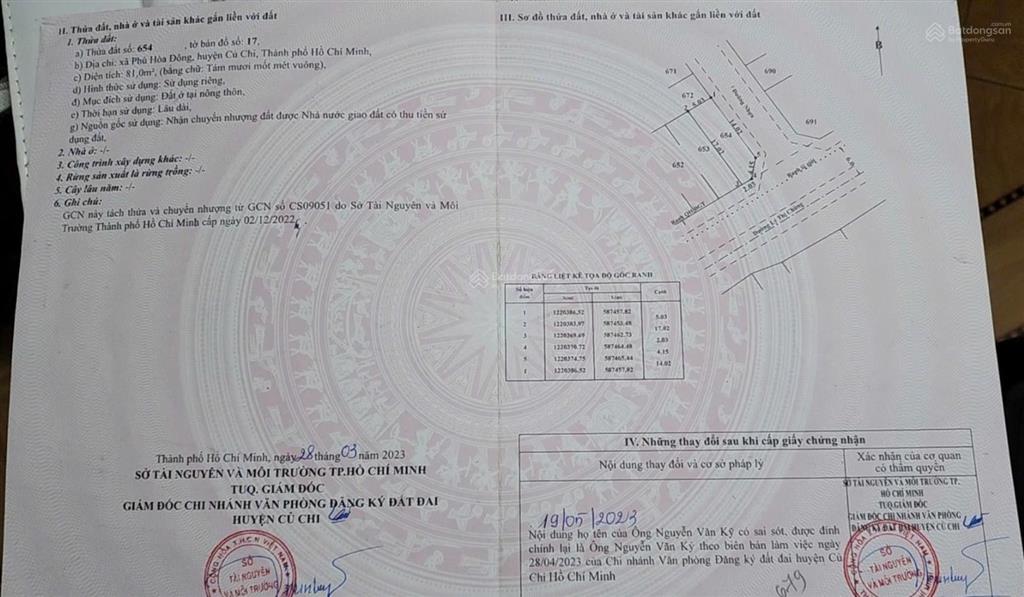 II. Thửa đất, nhà ở và tài sản khác gắn liền với đất
1. Thửa đất:
a) Thửa đất số: 654 , tờ bản đồ số: 17,
b) Địa chỉ: xã Phú Hòa Đông, huyện Củ Chi, Thành phố Hồ Chí Minh,
c) Diện tích: 81,0m², (bằng chữ: Tám mươi mốt mét vuông),
d) Hình thức sử dụng: Sử dụng riêng,
đ) Mục đích sử dụng: Đất ở tại nông thôn,
e) Thời hạn sử dụng: Lâu dài,
g) Nguồn gốc sử dụng: Nhận chuyển nhượng đất được Nhà nước giao đất có thu tiền sử
dụng đất,
2. Nhà ở: -/-
3. Công trình xây dựng khác: -/-
4. Rừng sản xuất là rừng trồng: -/-
5. Cây lâu năm: -/-
6. Ghi chú:
GCN này tách thửa và chuyển nhượng từ GCN số CS09051 do Sở Tài Nguyên và Môi
Trường Thành phố Hồ Chí Minh cấp ngày 02/12/2022,
Thành phố Hồ Chí Minh, ngày 28 tháng 03 năm 2023
SỞ TÀI NGUYÊN VÀ MÔI TRƯỜNG TP.HỒ CHÍ MINH
TUQ. GIÁM ĐỐC
GIÁM ĐỐC CHI NHÁNH VĂN PHÒNG ĐĂNG KÝ ĐẤT ĐAI
HUYỆN CỦ CHI
CỘNG HÒA X.H.C.N VIỆT NAM
SỞ
TÀI NGUYÊN
VÀ MÔI TRƯỜNG
III. Sơ đồ thửa đất, nhà ở và tài sản khác gắn liền với đất
Batdongsan
.com.vn
by PropertyGuru
B
671
690
672
2
5.03
1
Đường Nhựa
691
14.02
654
17.02
653
652
5
4.15
4
3
2.03
Ranh QHHLGT
Ranh lộ giới
6.0
BẢNG LIỆT KÊ TỌA ĐỘ GÓC RANH
Số hiệu điểm
Tọa độ
X(m)
Y(m)
Cạnh
1 1220386.52 587457.82
5.03
2 1220383.97 587453.48
17.02
3 1220369.69 587462.73
2.03
4 1220370.72 587464.48
4.15
5 1220374.75 587465.44
14.02
1 1220386.52 587457.82
Batdongsan
IV. Những thay đổi sau khi cấp giấy chứng nhận
Nội dung thay đổi và cơ sở pháp lý
Xác nhận của cơ quan
có thẩm quyền
19/05/2023
Nội dung họ tên của Ông Nguyễn Văn Kỹ có sai sót, được đính
chính lại là Ông Nguyễn Văn Ký theo biên bản làm việc ngày
28/04/2023 của Chi nhánh Văn phòng Đăng ký đất đai huyện Củ
Chi Hồ Chí Minh
SỞ TÀI NGUYÊN VÀ MÔI TRƯỜNG TP.
HỒ CHÍ MINH
TUQ.GIÁM ĐỐC
GIÁM ĐỐC CHI NHÁNH VĂN PHÒNG
ĐĂNG KÝ ĐẤT ĐAI HUYỆN CỦ CHI
SỞ
TÀI NGUYÊN
VÀ MÔI TRƯỜNG